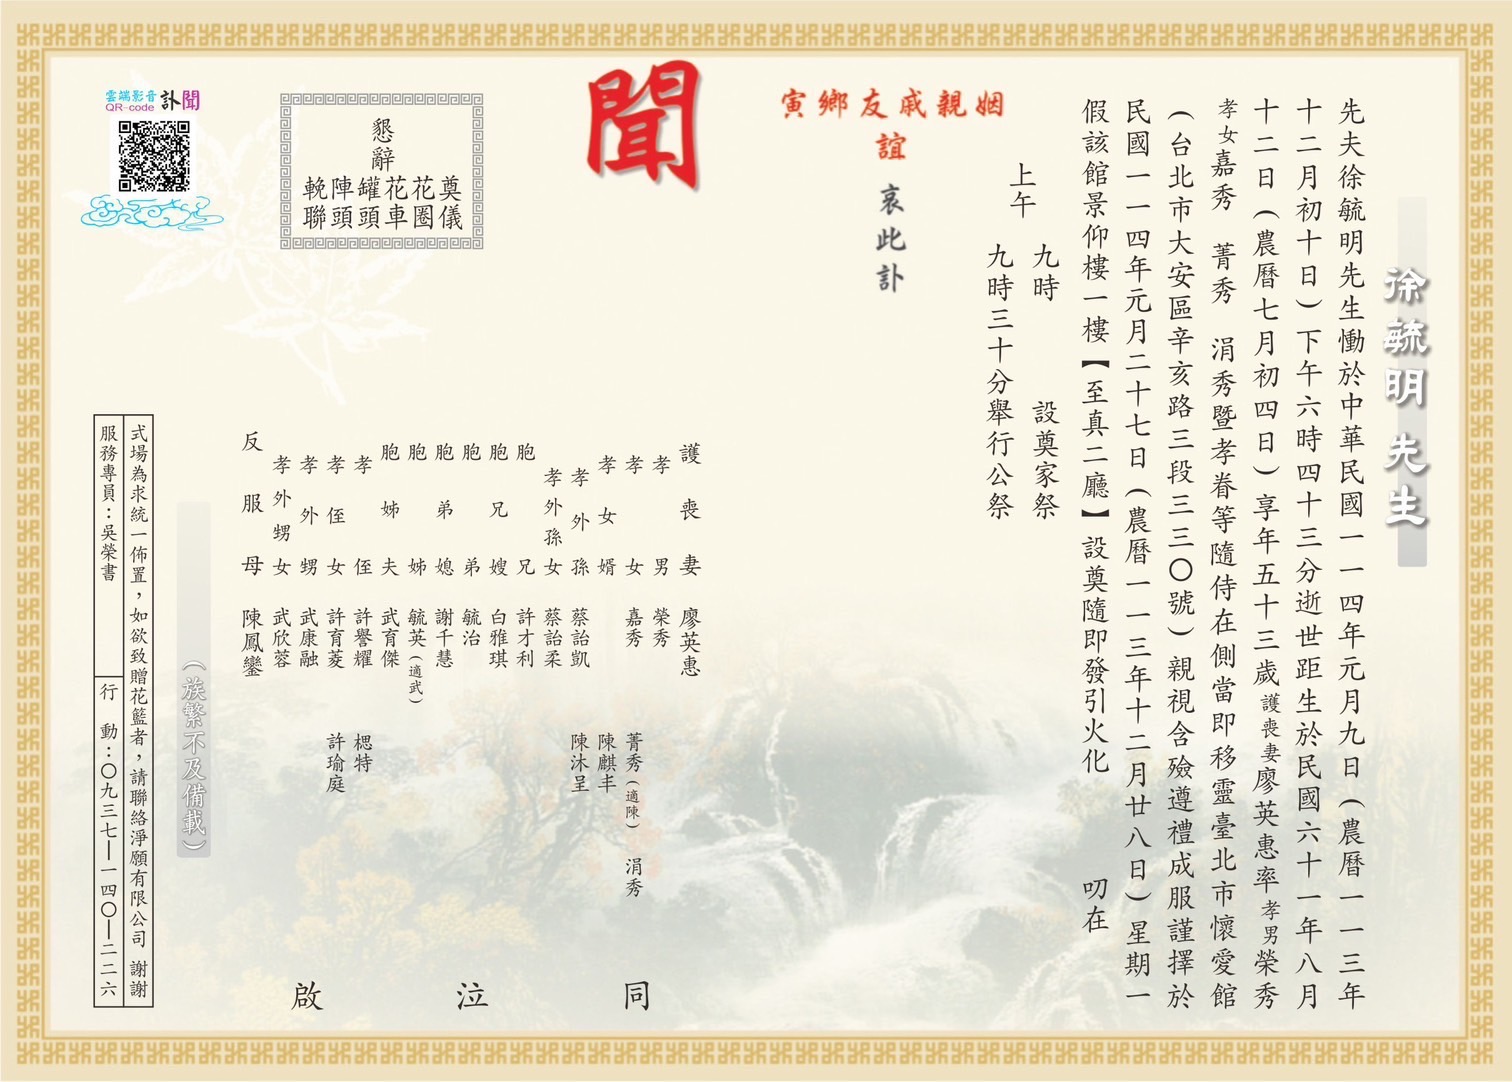 徐毓明 先生
先夫徐毓明先生慟於中華民國一一四年元月九日(農曆一一三年
十二月初十日)下午六時四十三分逝世距生於民國六十一年八月
十二日(農曆七月初四日)享年五十三歲護喪妻廖英惠率孝男榮秀
孝女嘉秀 菁秀 涓秀暨孝眷等隨侍在側當即移靈臺北市懷愛館
(台北市大安區辛亥路三段三三〇號)親視含殮遵禮成服謹擇於
民國一一四年元月二十七日(農曆一一三年十二月廿八日)星期一
假該館景仰樓一樓【至真二廳】設奠隨即發引火化 叨在
上午
九時 設奠家祭
九時三十分舉行公祭
寅鄉友戚親姻
誼
哀此訃
聞
護喪妻 廖英惠
孝男 榮秀
孝女 嘉秀 菁秀(適陳) 涓秀
孝女婿 陳麒丰
孝外孫 蔡詒凱 陳沐呈
孝外孫女 蔡詒柔
胞兄 許才利
胞兄嫂 白雅琪
胞弟 毓治
胞弟媳 謝千慧
胞姊 毓英(適武)
胞姊夫 武育傑
孝侄 許譽耀 楒特
孝侄女 許育菱 許瑜庭
孝外甥 武康融
孝外甥女 武欣蓉
反服母 陳鳳鑾
同泣啟
(族繁不及備載)
懇辭
奠儀
花圈
花車
罐頭
陣頭
輓聯
雲端影音
QR-code
訃聞
式場為求統一佈置，如欲致贈花籃者，請聯絡淨願有限公司 謝謝
服務專員：吳榮書
行動：〇九三七—一四〇—二二六